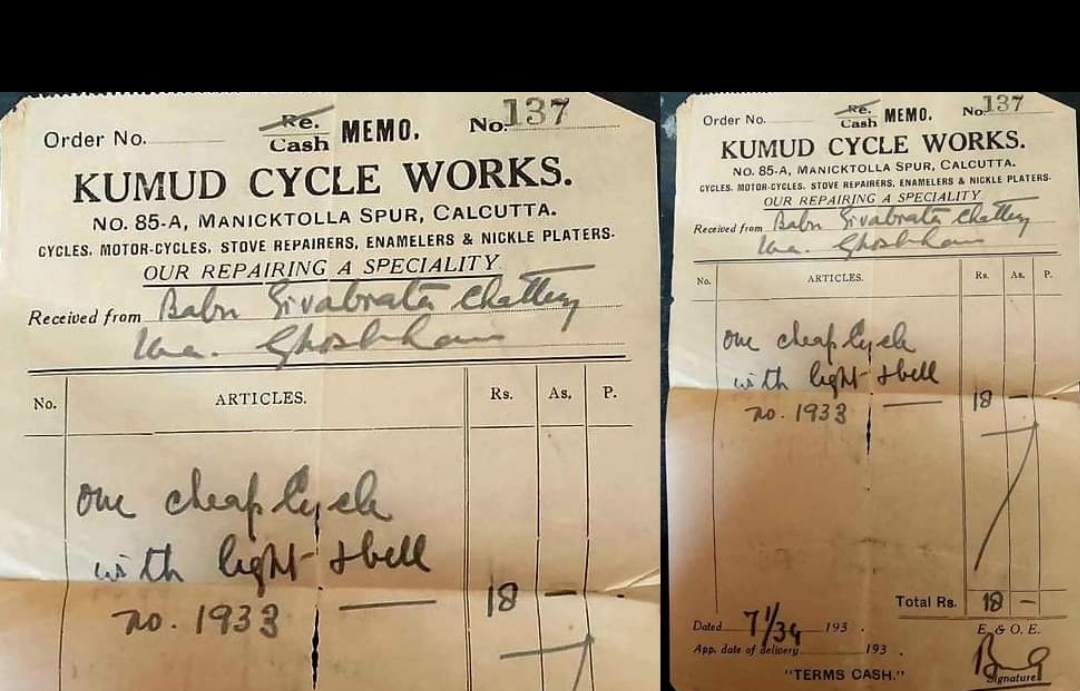 Order No. Re. Cash MEMO. No. 137
KUMUD CYCLE WORKS.
NO. 85-A, MANICKTOLLA SPUR, CALCUTTA.
CYCLES, MOTOR-CYCLES, STOVE REPAIRERS, ENAMELERS & NICKLE PLATERS.
OUR REPAIRING A SPECIALITY
Received from Babu Sivabrata Chatterj
No. ARTICLES. Rs. As. P.
one cheap Cycle
with light & bell
no. 1933 — 18 —
Order No. Re. Cash MEMO. No. 137
KUMUD CYCLE WORKS.
NO. 85-A, MANICKTOLLA SPUR, CALCUTTA.
CYCLES, MOTOR-CYCLES, STOVE REPAIRERS, ENAMELERS & NICKLE PLATERS.
OUR REPAIRING A SPECIALITY
Received from Babu Sivabrata Chatterj
No. ARTICLES. Rs. As. P.
one cheap Cycle
with light & bell
no. 1933 — 18 —
Total Rs. 18 —
Dated 7/1/34 193 . E. & O. E.
App. date of delivery 193 .
"TERMS CASH." Signature